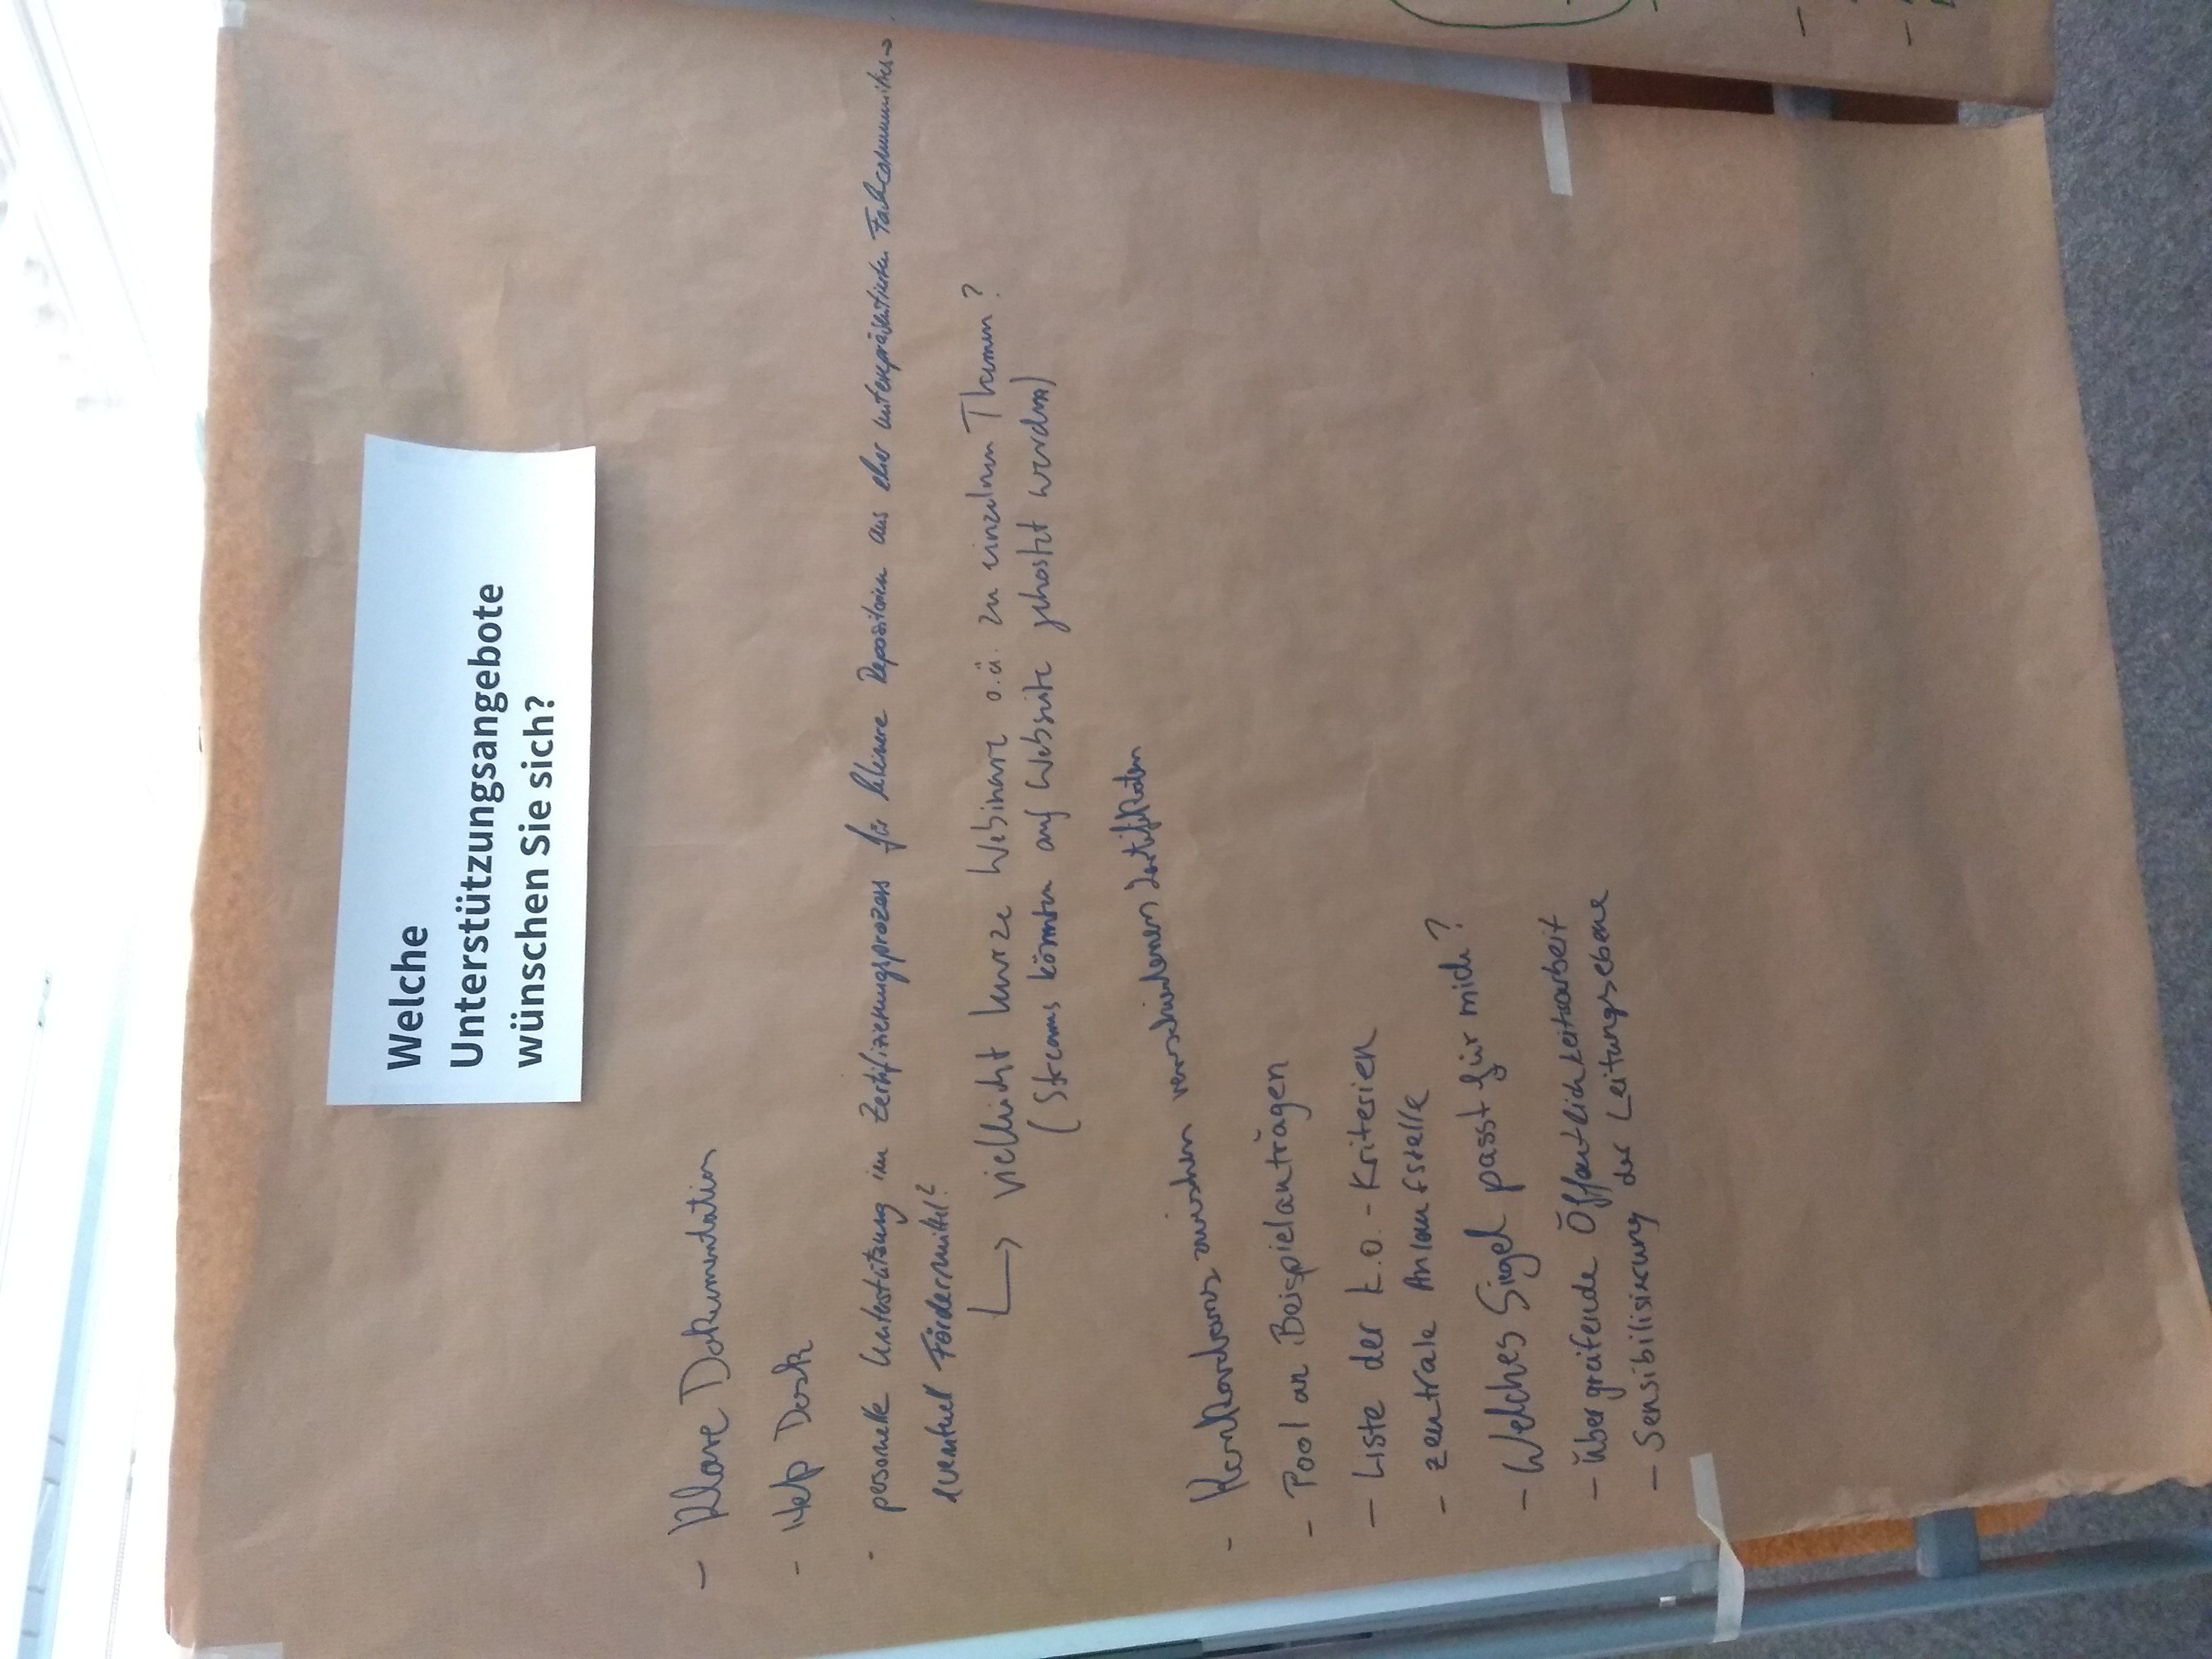 Welche
Unterstützungsangebote
wünschen Sie sich?
- Klare Dokumentation
- Help Desk
- personelle Unterstützung im Zertifizierungsprozess für kleinere Repositorien aus eher unterrepräsentierten Fachcommunities →
eventuell Fördermittel?
↳ vielleicht kurze Webinare o.ä. zu einzelnen Themen?
(Streams könnten auf Website gehostet werden)
- zwischen verschiedenen Zertifikaten
- Pool an Beispielanträgen
- Liste der k.o.-Kriterien
- zentrale Anlaufstelle
- Welches Siegel passt für mich?
- übergreifende Öffentlichkeitsarbeit
- Sensibilisierung der Leitungsebene